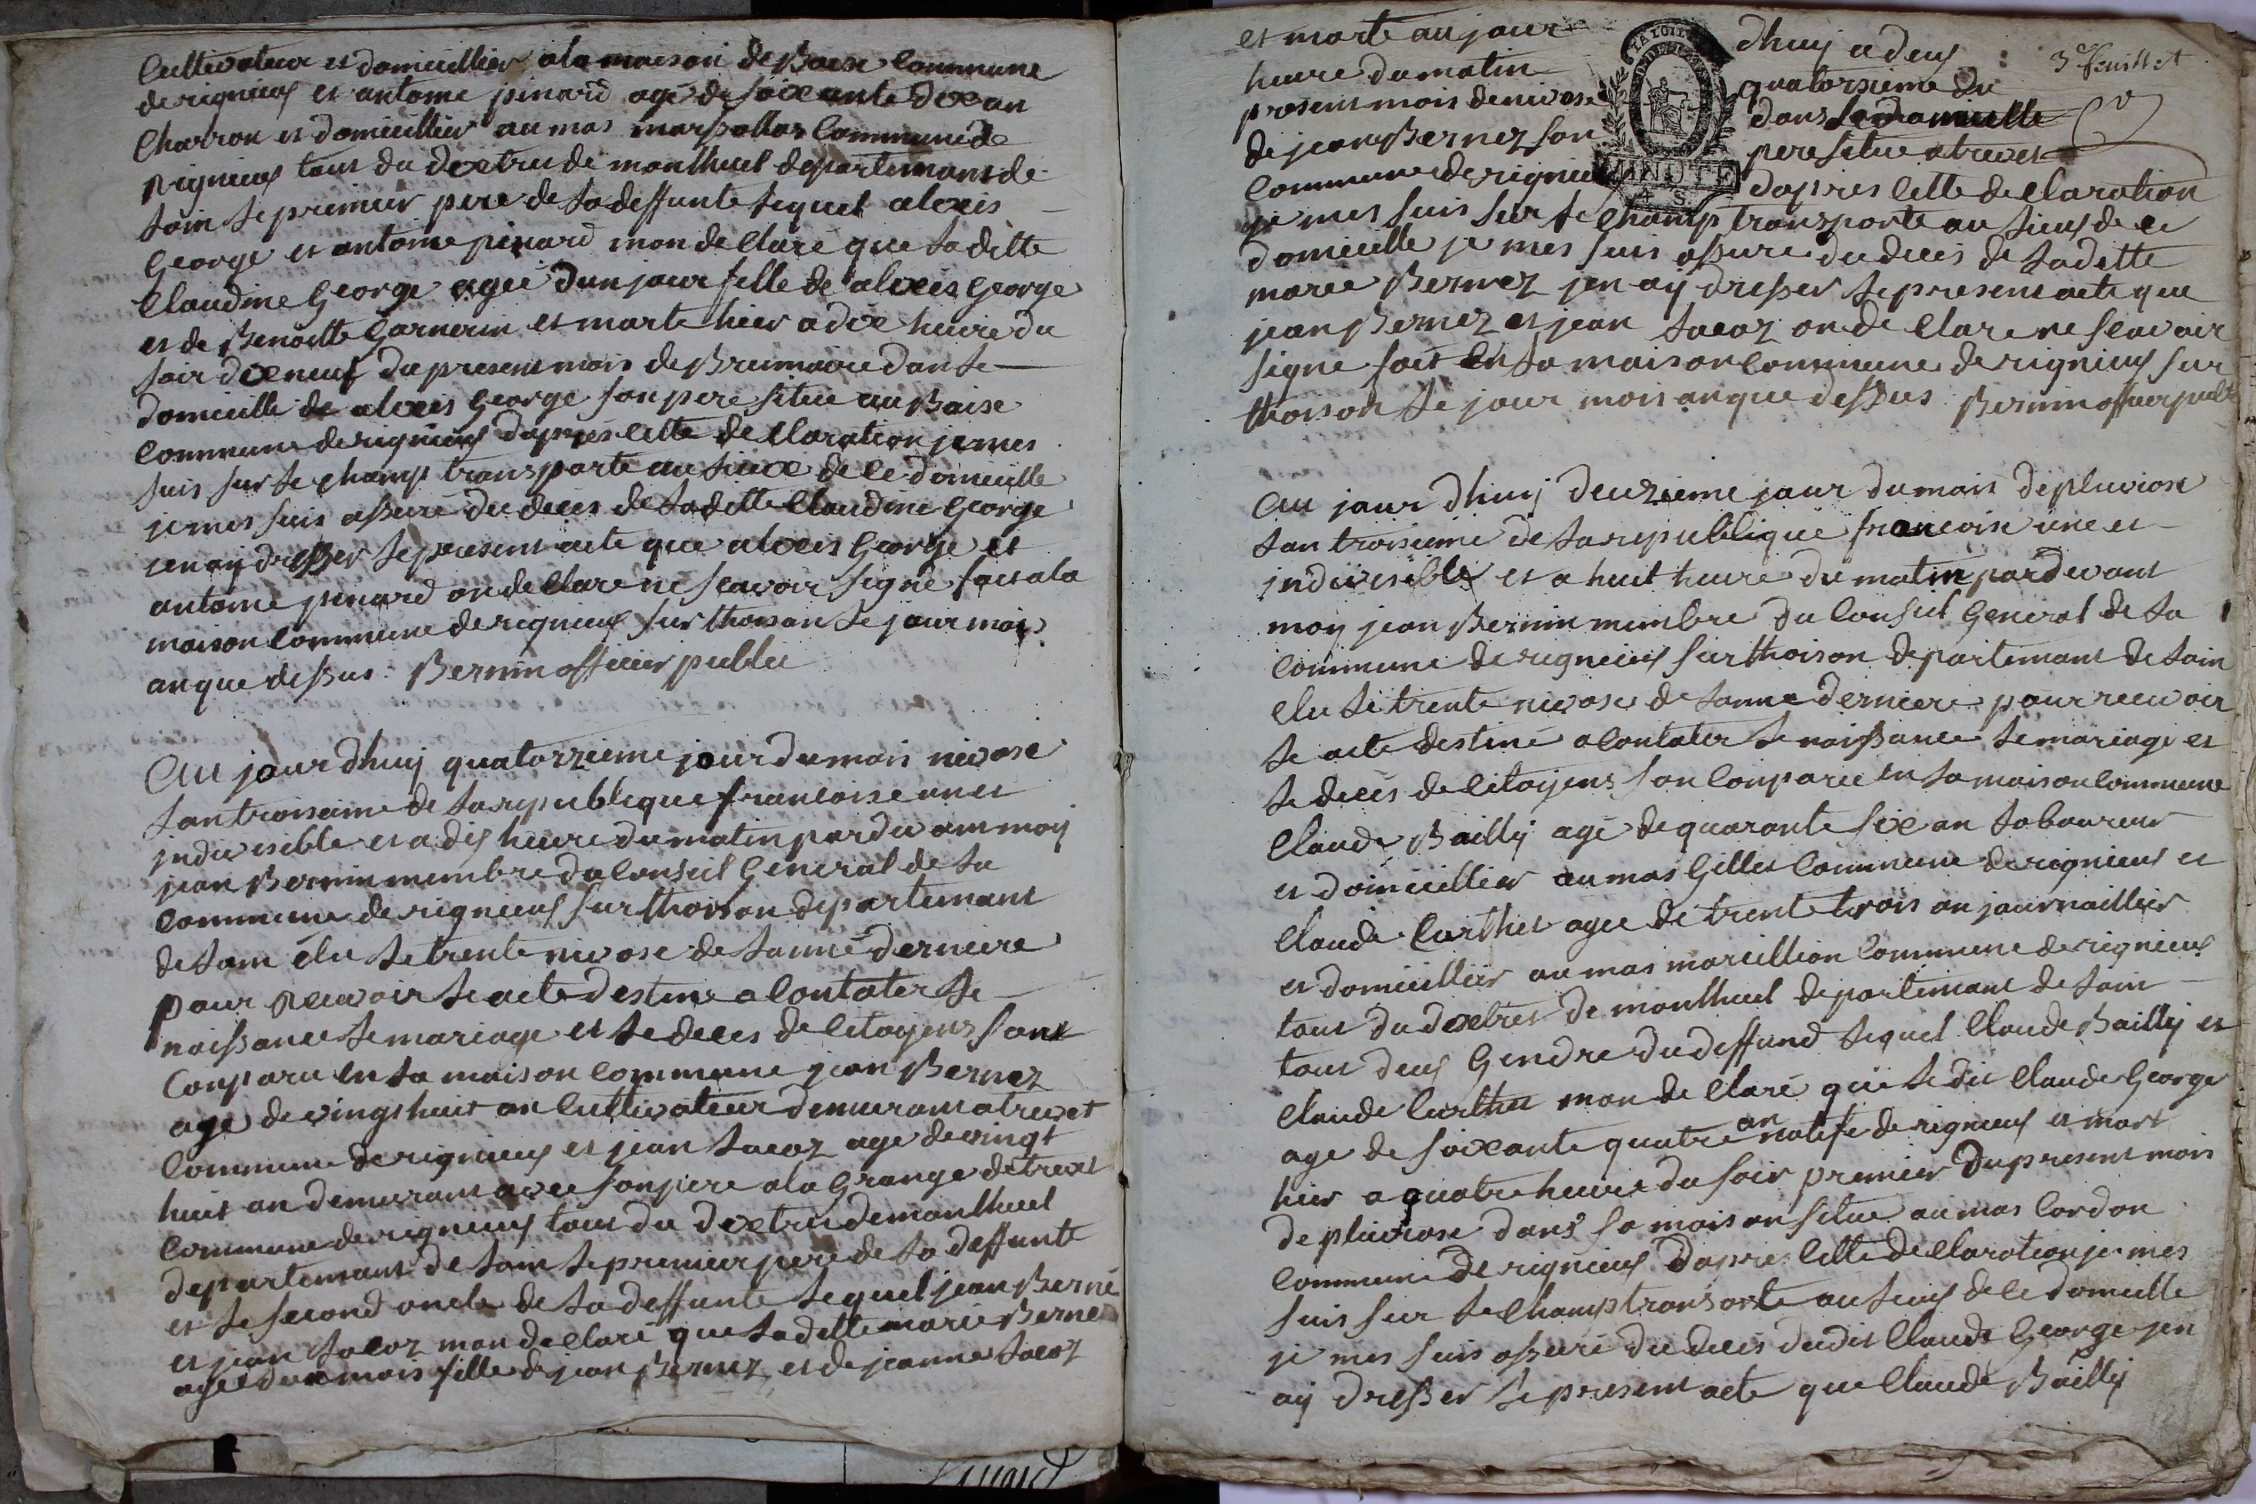 Cultivateur et domicillier a la maison de Baise Commune
de rignieux et antoine pinard agé de soixante dix an
Charron et domicillier au mas marpollas Commune de
rignieux tous du dextret de montluel departemant de
lain le premier pere de la deffunte lequel alexis
George et antoine pinard mon declaré que ladille
Claudine George agée dun jour fille de alexis George
et de Benoitte Garnerin et morte hier a dix heure du
soir dixneuf du present mois de Brumaire dans le
domicille de alexis George son pere situe au Baise
Commune de rignieux dapres cette declaration je mes
suis sur le champ transporte au lieux de ce domicille
je mes suis assuré du deces de ladette Claudine George
jen aÿ dresser le present acte que alexis George et
antoine pinard on declare ne scavoir signé fait a la
maison Commune de rignieux sur thoison le jour mois
an que dessus Bernin officier public
Au jourdhuy quatorzieme jour du mois nivose
lan troisieme de la republique francoise une et
jndivisible et a dix heure du matin pardevant moy
jean Bernin membre du Conseil General de la
Commune de rignieux sur thoison departemant
de lain élu le trente nivose de lanné derniere
pour recevoir le acte destine a Contater le
naissance le mariage et le deces de Citoyens sont
Conparu en la maison Commune jean Bernez
age de vingt huit an Cultivateur demurant a trevet
Commune de rignieux et jean Lacoz age de vingt
huit an demurant avec son pere a la Grange de trevet
Commune de rignieux tous du dextrit de montluel
departemant de lain le premier pere de la deffunte
et le second oncle de la deffunte lequel jean Berne
et jean Lacoz mon declaré que ladette marie Berne
agée dun mois fille de jean Bernez et de jeanne Lacoz
3e feuillet
et morte au jour dhuy a deux
heure du matin quatorzieme du
present mois de nivose dans le domicille
de jean Bernez son pere situe a trevet
Commune de rignieux dapres cette declaration
je mes suis sur le champ transporte au lieux de ce
domicille je mes suis assure du deces de ladette
marie Bernez jen aÿ dresser le present acte que
jean Bernez et jean Lacoz on declare ne scavoir
signe fait en la maison Commune de rignieux sur
thoison le jour mois an que dessus Bernin officier public
Au jour dhuy deuzieme jour du mois de pluviose
lan troisieme de la republique francoise une et
jndivisible et a huit heure du matin pardevant
moy jean Bernin membre du Conseil General de la
Commune de rignieux sur thoison departemant de lain
élu le trente nivose de lanne derniere pour recevoir
le acte destiné a Contater le naissance le mariage et
le deces de Citoyens son Conparu en la maison Commune
Claude Bailly agé de quarante six an laboureur
et domicillier au mas Gilles Commune de rignieux et
Claude Curthet agee de trente trois an journaillier
et domicillier au mas marcillion Commune de rignieux
tous du dextret de montluel departemant de lain
tous deux Gendre du deffund lequel Claude Bailly et
Claude Curthet mon declaré que le dit Claude George
age de soixante quatre an natife de rignieux et mort
hier a quatre heure du soir premier du present mois
de pluviose dans sa maison situe au mas Cordon
Commune de rignieux dapre cette declaration je mes
suis sur le champ transorte au lieux de ce domicille
je mes suis assuré du deces dudit Claude George jen
aÿ dresser le present acte que Claude Bailly
LA LOI
MINUTE
4 S.